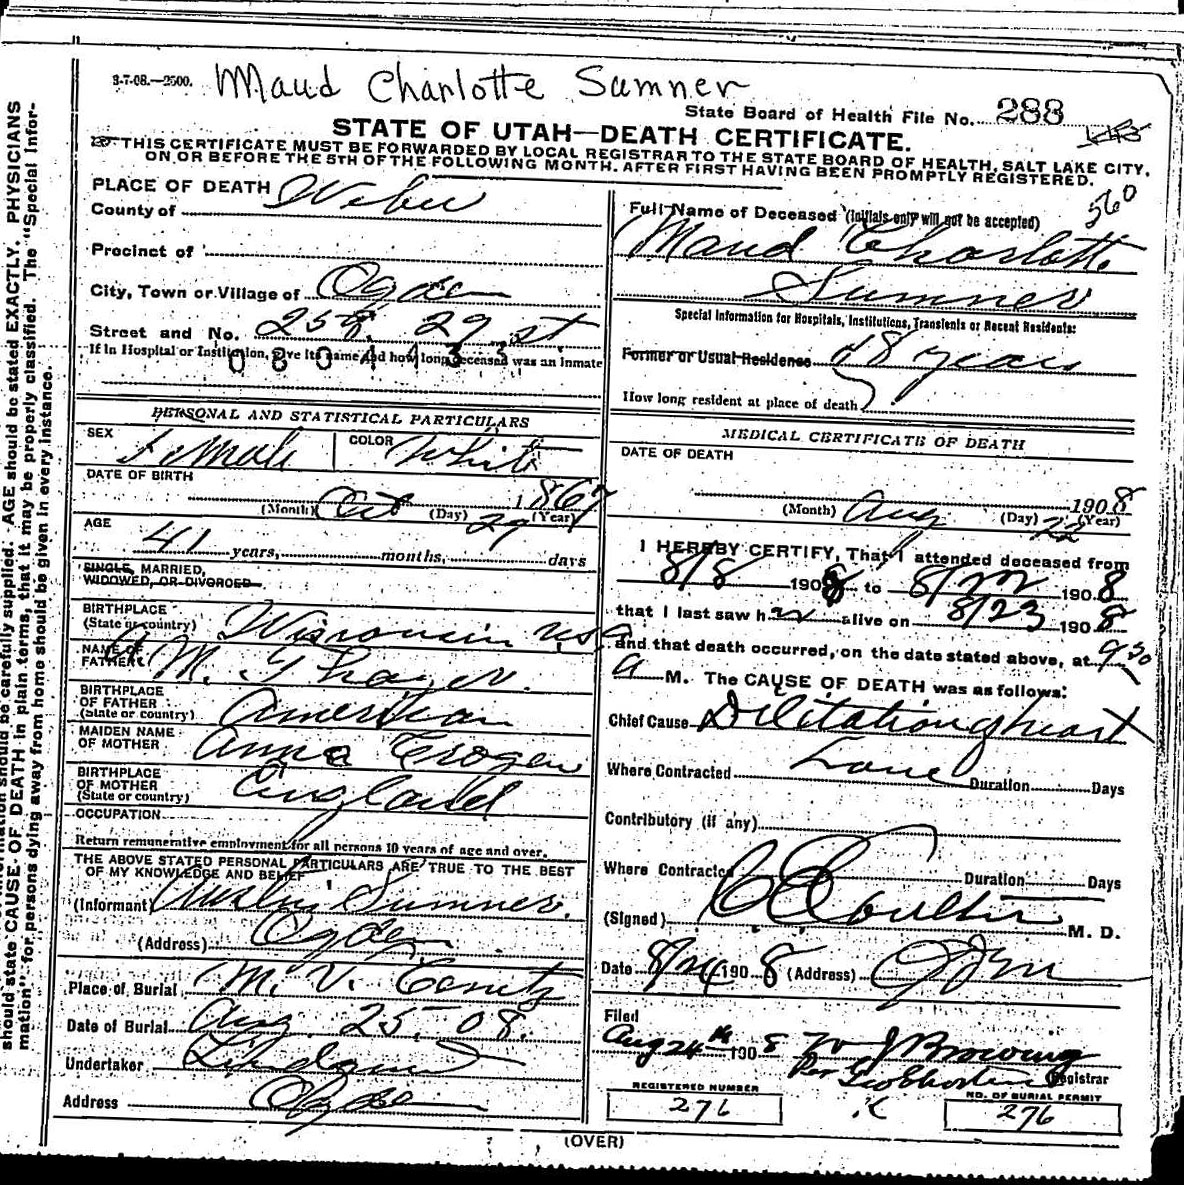 3-7-08.—2500. Maud Charlotte Sumner
State Board of Health File No. 288
STATE OF UTAH—DEATH CERTIFICATE.
THIS CERTIFICATE MUST BE FORWARDED BY LOCAL REGISTRAR TO THE STATE BOARD OF HEALTH, SALT LAKE CITY,
ON OR BEFORE THE 5TH OF THE FOLLOWING MONTH. AFTER FIRST HAVING BEEN PROMPTLY REGISTERED.
PLACE OF DEATH
County of Weber
Precinct of
City, Town or Village of Ogden
Street and No. 258 29 st
If in Hospital or Institution, give its name and how long deceased was an inmate
PERSONAL AND STATISTICAL PARTICULARS
SEX Female COLOR White
DATE OF BIRTH
(Month) Oct (Day) 29 (Year) 1867
AGE
41 years, months, days
SINGLE, MARRIED,
WIDOWED, OR DIVORCED
BIRTHPLACE
(State or country) Wisconsin USA
NAME OF
FATHER
BIRTHPLACE
OF FATHER
(State or country) American
MAIDEN NAME
OF MOTHER Anna
BIRTHPLACE
OF MOTHER
(State or country) England
OCCUPATION
Return remunerative employment for all persons 10 years of age and over.
THE ABOVE STATED PERSONAL PARTICULARS ARE TRUE TO THE BEST
OF MY KNOWLEDGE AND BELIEF
(Informant) Austin Sumner.
(Address) Ogden
Place of Burial M. V.
Date of Burial Aug. 25, 08.
Undertaker
Address Ogden
560
Full Name of Deceased (Initials only will not be accepted)
Maud Charlotte
Sumner
Special Information for Hospitals, Institutions, Transients or Recent Residents:
Former or Usual Residence 18 years
How long resident at place of death
MEDICAL CERTIFICATE OF DEATH
DATE OF DEATH
1908
(Month) Aug (Day) (Year)
I HEREBY CERTIFY, That I attended deceased from
8/8 1908 to 190 8
that I last saw h er alive on 8/23 190 8
and that death occurred, on the date stated above, at 9 30
a M. The CAUSE OF DEATH was as follows:
Chief Cause Dilitation of heart
Where Contracted Duration Days
Contributory (if any)
Where Contracted Duration Days
(Signed) Coulter M. D.
Date 8/24 190 8 (Address) Ogden
Filed
Aug 24th 190 8 Browning
Registrar
REGISTERED NUMBER
276
NO. OF BURIAL PERMIT
276
(OVER)
should state CAUSE OF DEATH in plain terms, that it may be properly classified. The "Special Infor-
mation" for persons dying away from home should be given in every instance.
should be carefully supplied. AGE should be stated EXACTLY. PHYSICIANS